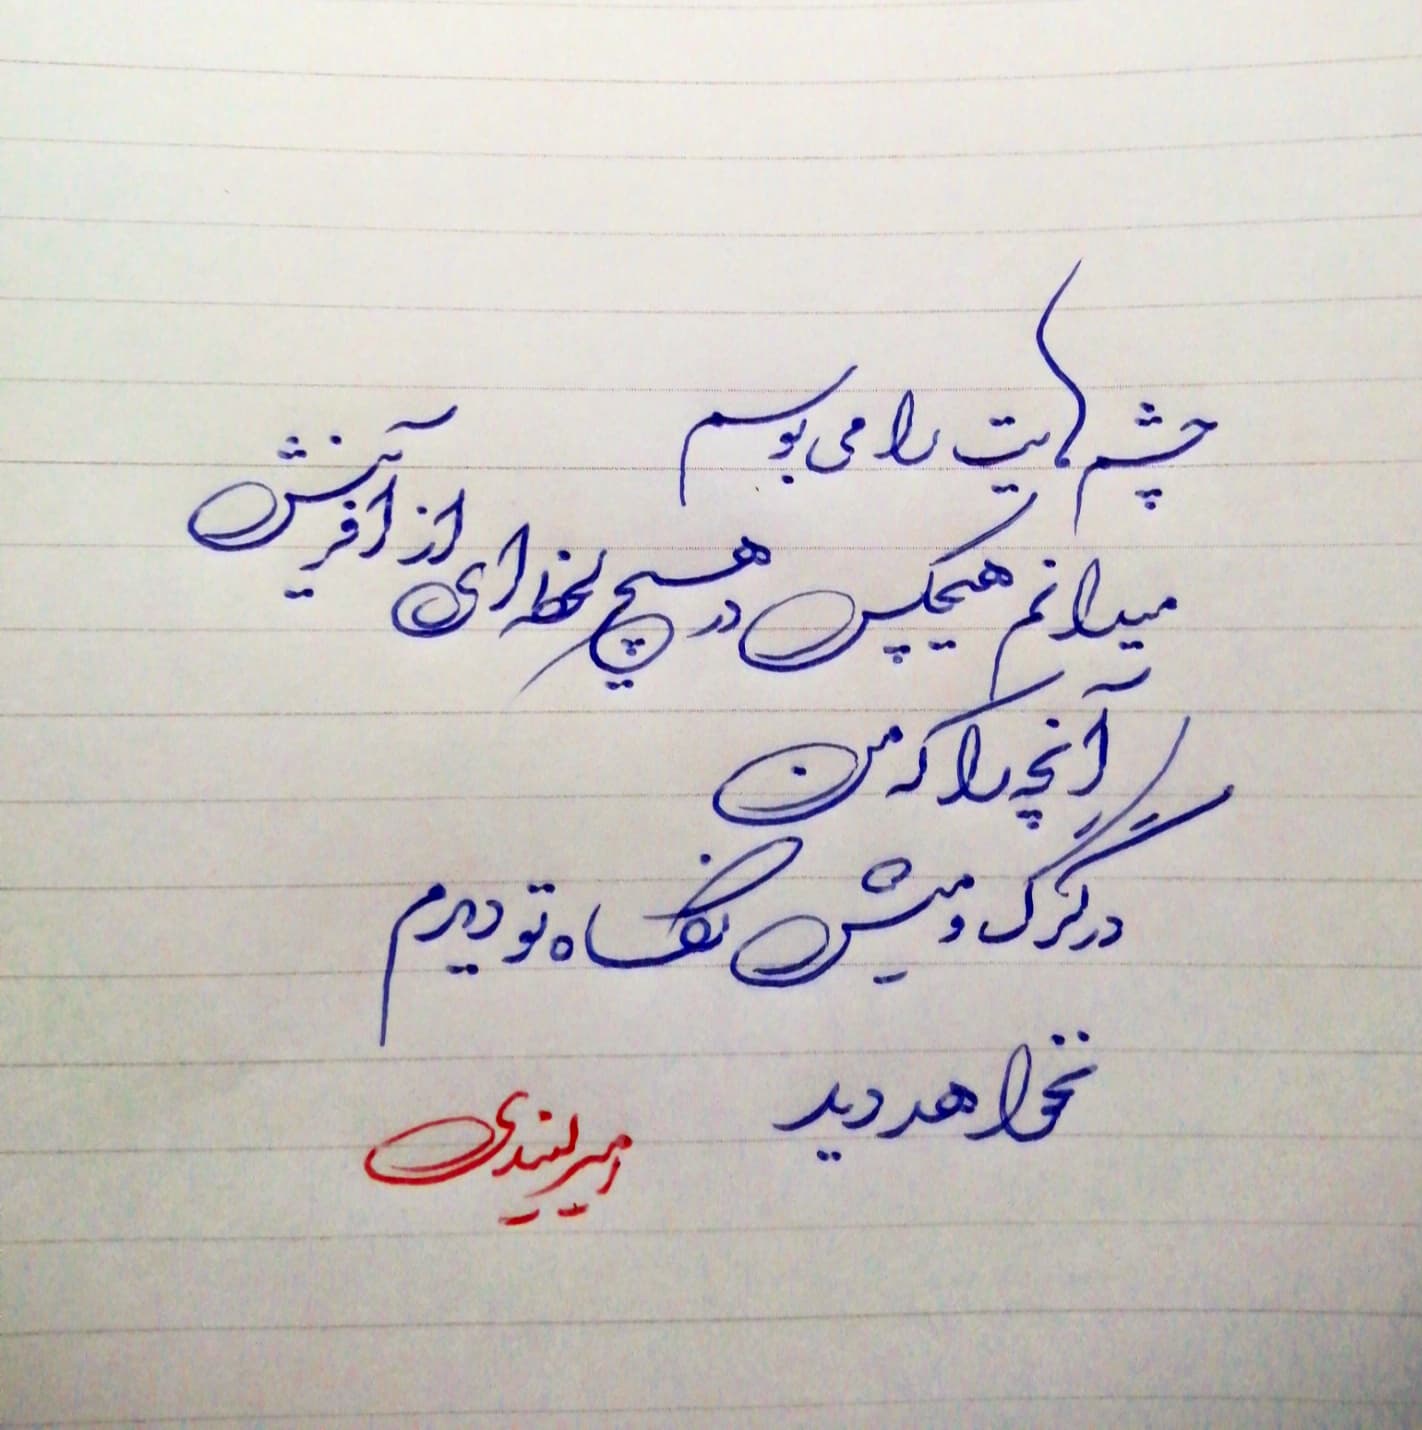 چشمهایت را می بوسم
میدانم هیچکس در هیچ لحظه ای از آفرینش
آنچه را که من
در گرگ و میش نگاه تو دیدم
نخواهد دید